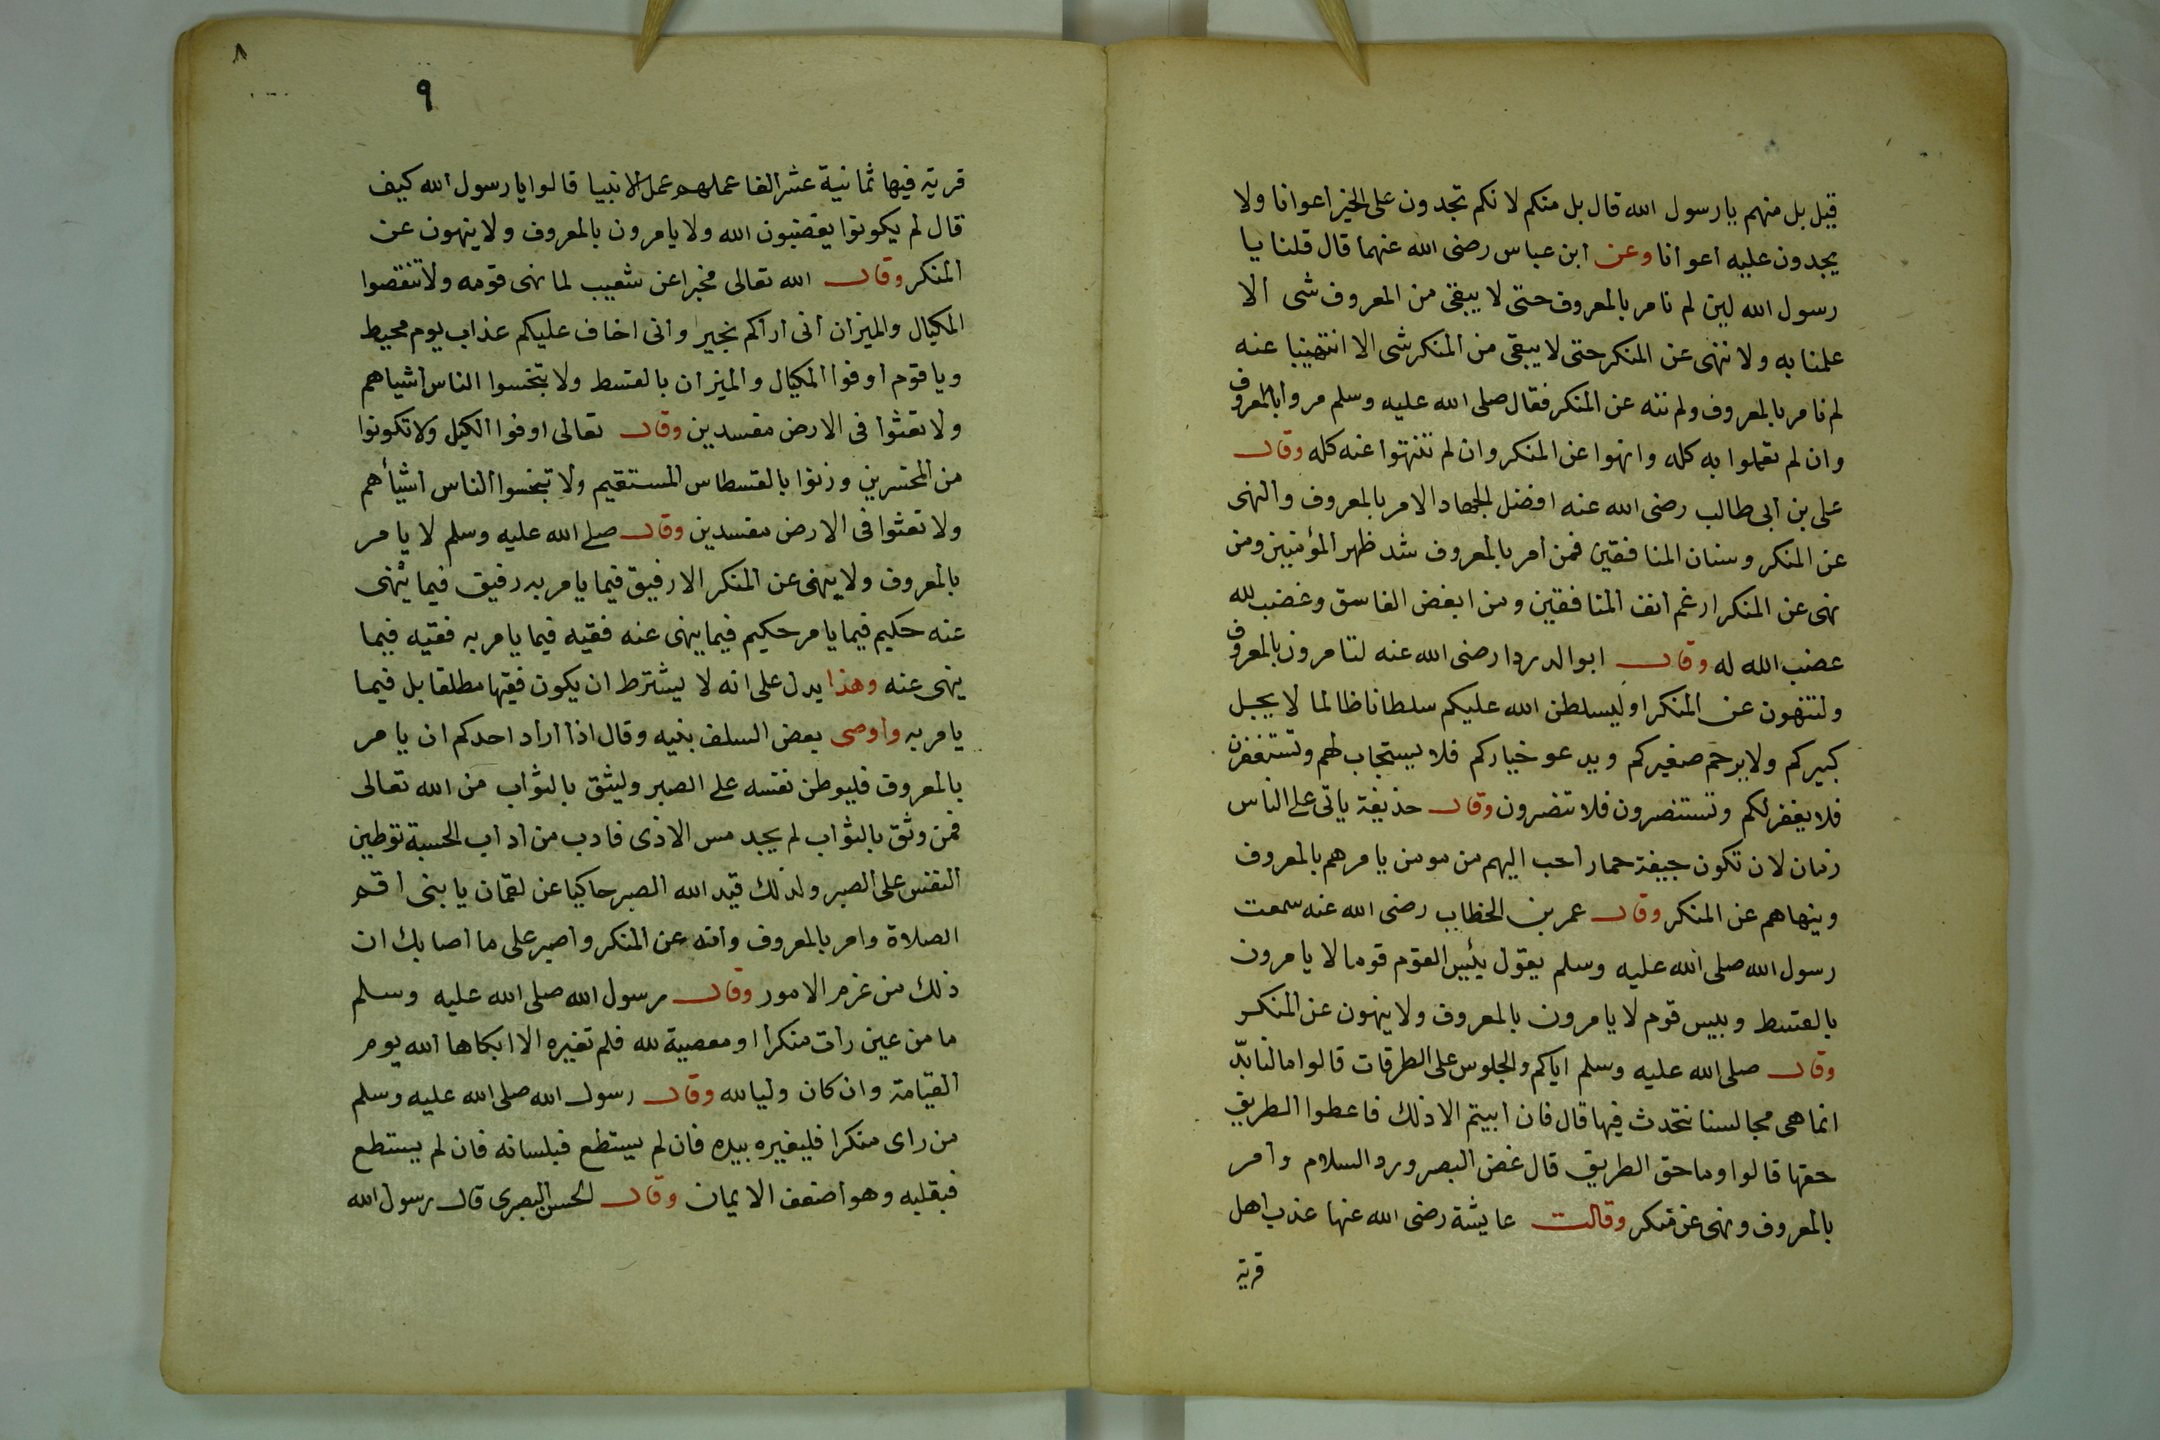 قيل بل منهم يا رسول الله قال بل منكم لانكم تجدون على الخير اعوانا ولا
يجدون عليه اعوانا وعن ابن عباس رضى الله عنهما قال قلنا يا
رسول الله لين لم نامر بالمعروف حتى لا يبقى من المعروف شى الا
علمنا به ولا ننهى عن المنكر حتى لا يبقى من المنكر شى الا انتهينا عنه
لم نامر بالمعروف ولم ننه عن المنكر فقال صلى الله عليه وسلم مروا بالمعروف
وان لم تعملوا به كله وانهوا عن المنكر وان لم تنتهوا عنه كله وقال
على بن ابى طالب رضى الله عنه افضل الجهاد الامر بالمعروف والنهى
عن المنكر وسنان المنافقين فمن امر بالمعروف شد ظهر المؤمنين ومن
نهى عن المنكر ارغم انف المنافقين ومن ابغض الفاسق وغضب لله
غضب الله له وقال ابو الدردا رضى الله عنه لتامرون بالمعروف
ولتنهون عن المنكر او ليسلطن الله عليكم سلطانا ظالما لا يجل
كبيركم ولا يرحم صغيركم ويدعو خياركم فلا يستجاب لهم وتستغفرن
فلا يغفر لكم وتستنصرون فلا تنصرون وقال حذيفة ياتى على الناس
زمان لان تكون جيفة حمار احب اليهم من مومن يامرهم بالمعروف
وينهاهم عن المنكر وقال عمر بن الخطاب رضى الله عنه سمعت
رسول الله صلى الله عليه وسلم يقول بئس القوم قوما لا يامرون
بالقسط وبيس قوم لا يامرون بالمعروف ولا ينهون عن المنكر
وقال صلى الله عليه وسلم اياكم والجلوس على الطرقات قالوا مالنا بدّ
انما هى مجالسنا نتحدث فيها قال فان ابيتم الا ذلك فاعطوا الطريق
حقها قالوا وما حق الطريق قال غض البصر ورد السلام وامر
بالمعروف ونهى عن منكر وقالت عايشة رضى الله عنها عذب اهل
قرية
٨
٩
قرية فيها ثمانية عشر الفا عملهم عمل الانبيا قالوا يا رسول الله كيف
قال لم يكونوا يغضبون الله ولا يامرون بالمعروف ولا ينهون عن
المنكر وقال الله تعالى مخبرا عن شعيب لما نهى قومه ولا تنقصوا
المكيال والميزان انى اراكم بخير وانى اخاف عليكم عذاب يوم محيط
ويا قوم اوفوا المكيال والميزان بالقسط ولا تبخسوا الناس اشياهم
ولا تعثوا فى الارض مفسدين وقال تعالى اوفوا الكيل ولا تكونوا
من المخسرين وزنوا بالقسطاس المستقيم ولا تبخسوا الناس اشيأهم
ولا تعثوا فى الارض مفسدين وقال صلى الله عليه وسلم لا يامر
بالمعروف ولا ينهى عن المنكر الا رفيق فيما يامر به رفيق فيما ينهى
عنه حكيم فيما يامر حكيم فيما ينهى عنه فقيه فيما يامر به فقيه فيما
ينهى عنه وهذا يدل على انه لا يشترط ان يكون فقيها مطلقا بل فيما
يامر به واوصى بعض السلف بنيه وقال اذا اراد احدكم ان يامر
بالمعروف فليوطن نفسه على الصبر وليثق بالثواب من الله تعالى
فمن وثق بالثواب لم يجد مس الاذى فادب من اداب الحسبة توطين
النفس على الصبر ولذلك قيد الله الصبر حاكيا عن لقمان يا بنى اقم
الصلاة وامر بالمعروف وانه عن المنكر واصبر على ما اصابك ان
ذلك من عزم الامور وقال رسول الله صلى الله عليه وسلم
ما من عين رات منكرا او معصية لله فلم تغيره الا ابكاها الله يوم
القيامة وان كان وليا لله وقال رسول الله صلى الله عليه وسلم
من راى منكرا فليغيره بيده فان لم يستطع فبلسانه فان لم يستطع
فبقلبه وهو اضعف الايمان وقال الحسن البصرى قال رسول الله